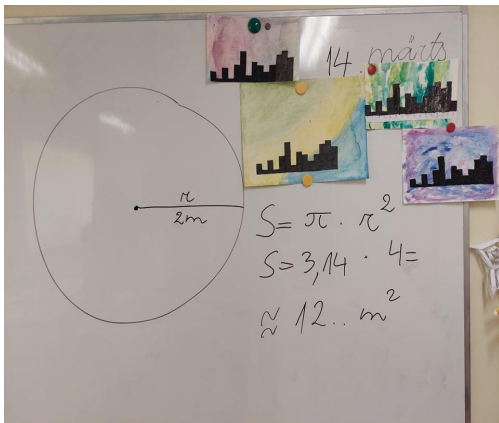 14. märts
r
2m
S = π · r²
S = 3,14 · 4 =
≈ 12.. m²